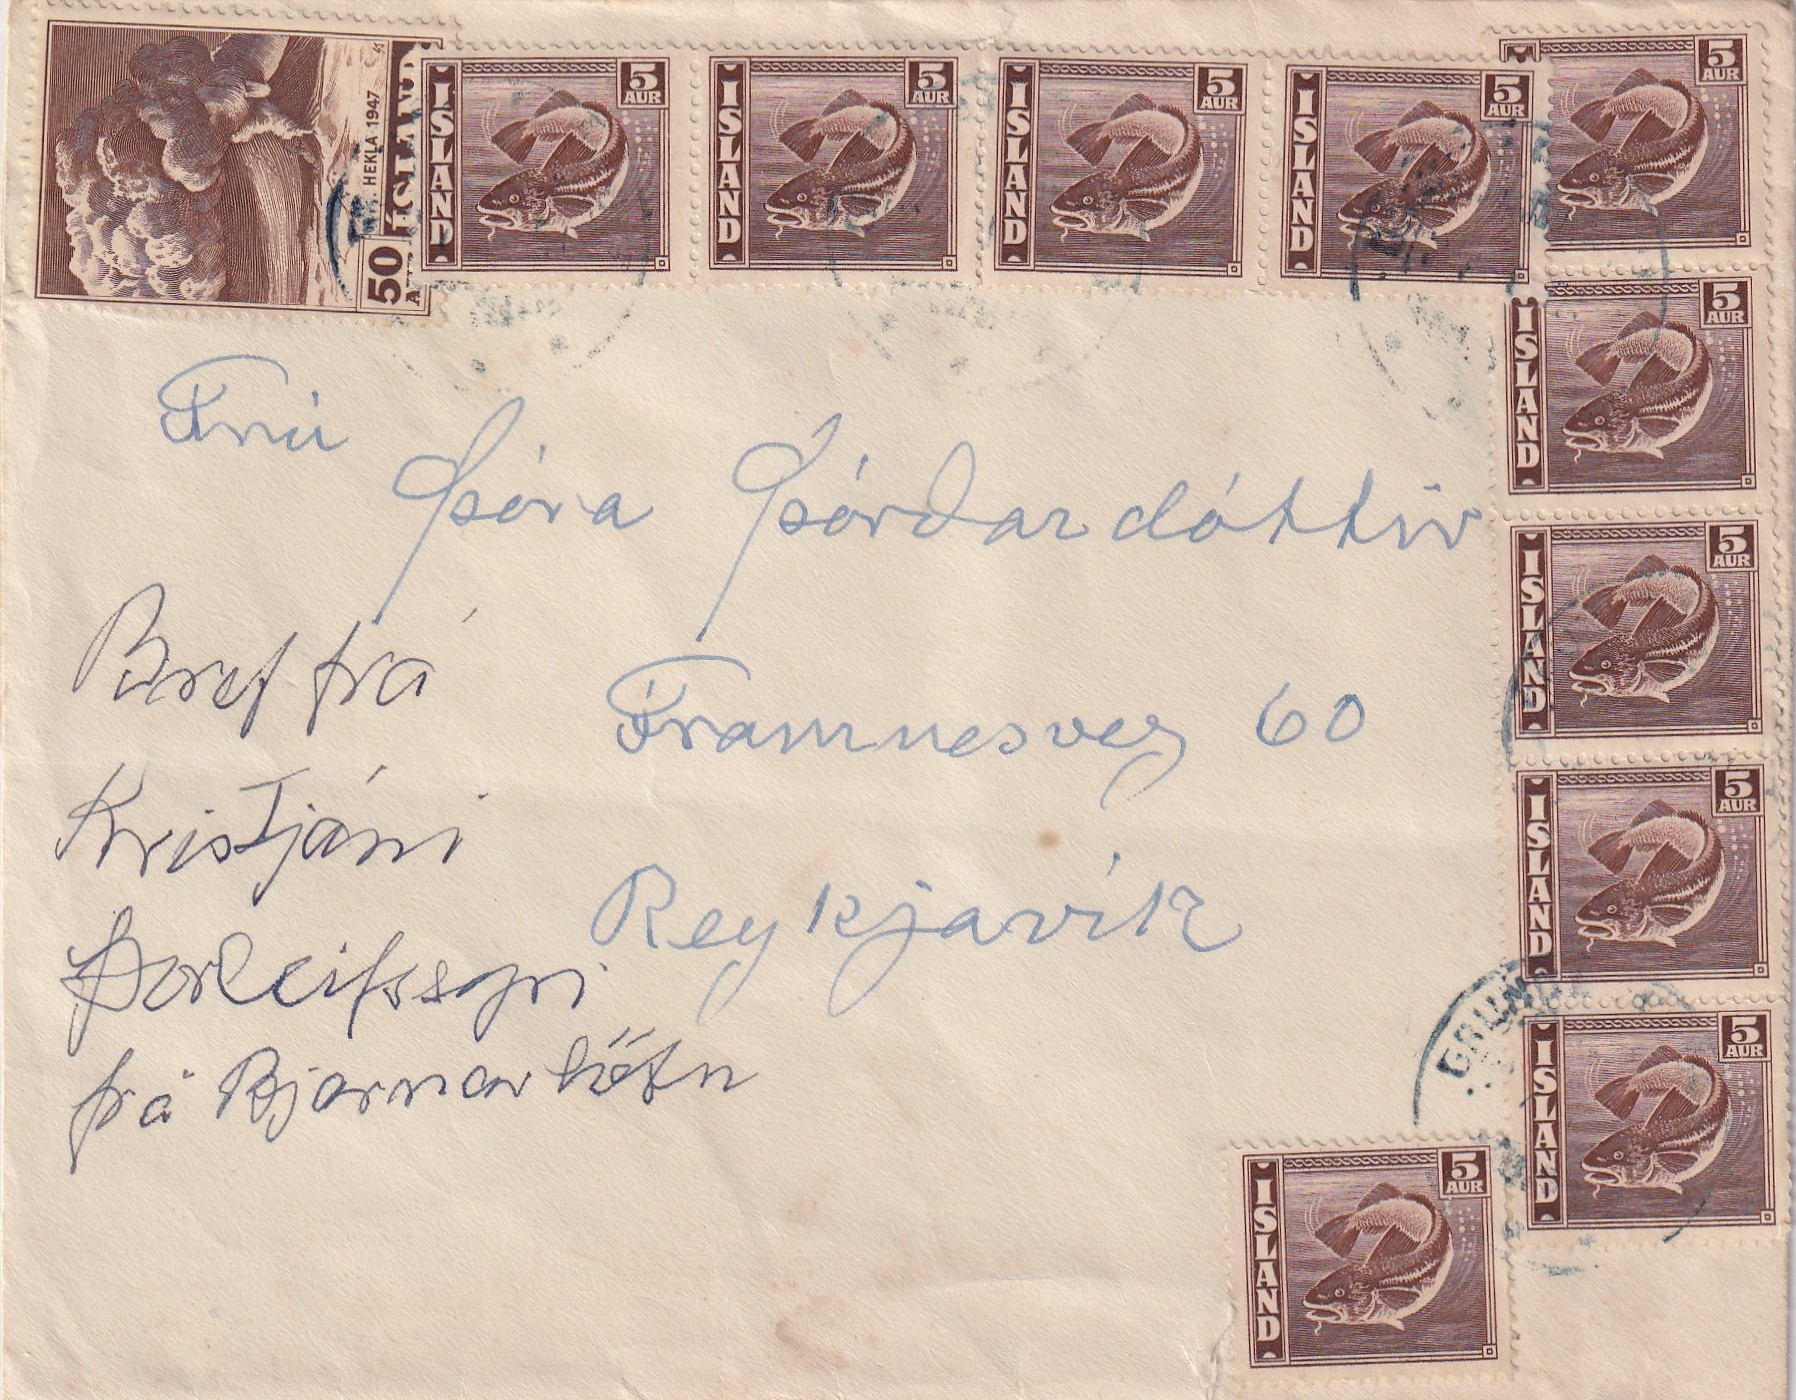 HEKLA 1947
ÍSLAND
50
ISLAND 5 AUR
ISLAND 5 AUR
ISLAND 5 AUR
ISLAND 5 AUR
5 AUR
ISLAND 5 AUR
ISLAND 5 AUR
ISLAND 5 AUR
ISLAND 5 AUR
ISLAND 5 AUR
Frú
Þóra Þórðardóttir
Framnesveg 60
Reykjavík
Bref frá
Kristjáni
Þorleifssyni
frá Bjarnarhöfn
GRUN